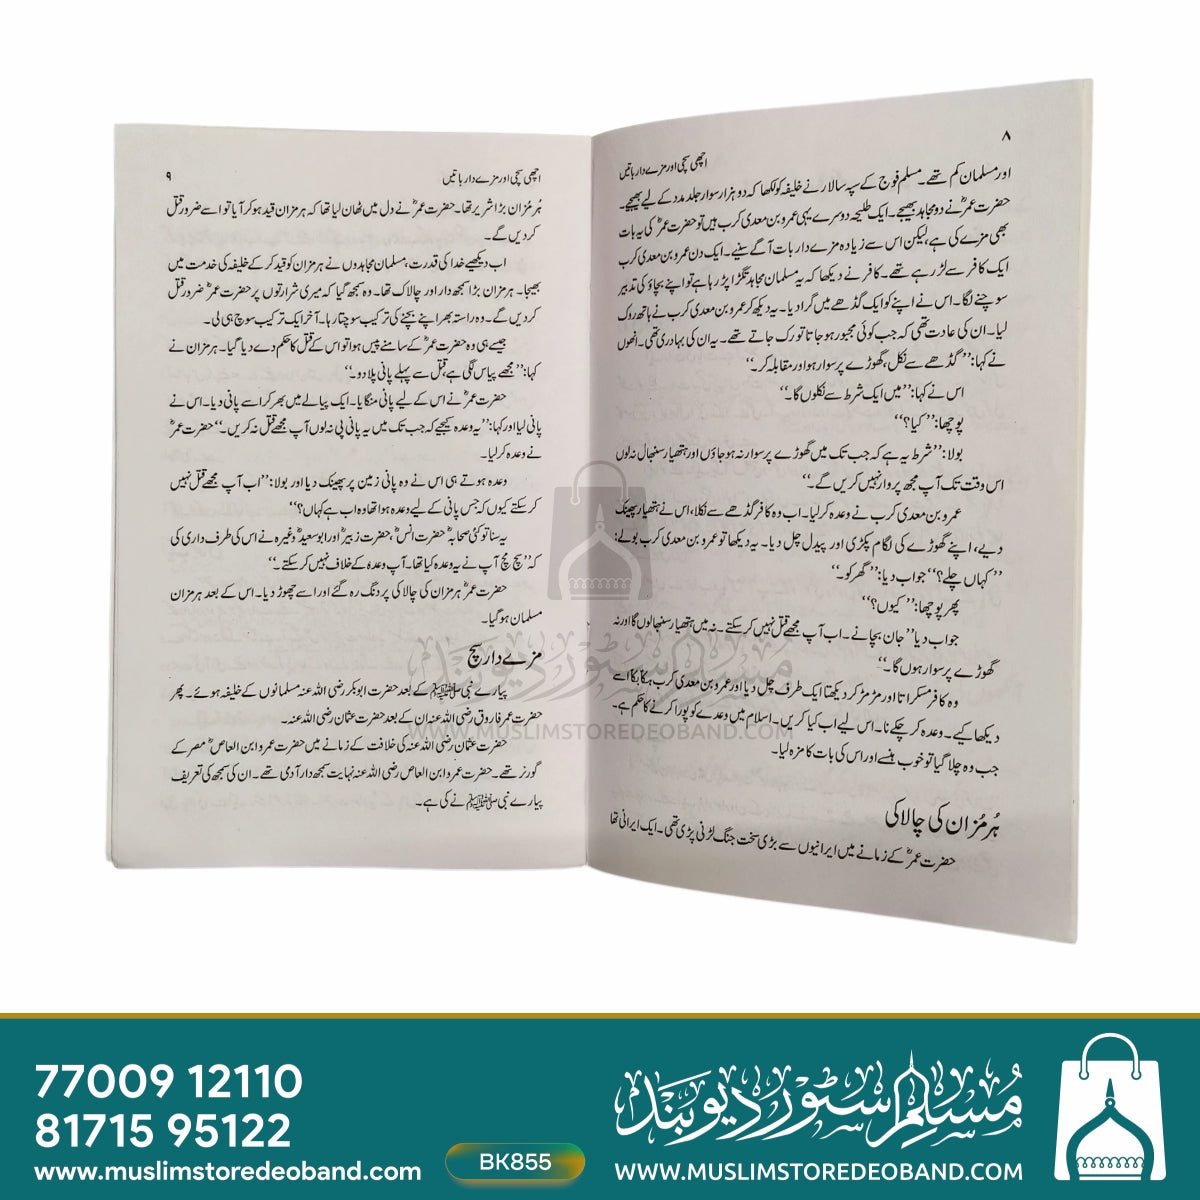 ۸
اچھی سچی اور مزے دار باتیں
اور مسلمان کم تھے۔ مسلم فوج کے سپہ سالار نے خلیفہ کو لکھا کہ دو ہزار سوار جلد مدد کے لیے بھیجیے۔
حضرت عمرؓ نے دو مجاہد بھیجے۔ ایک طلیحہ دوسرے یہی عمرو بن معدی کرب ہیں تو حضرت عمرؓ کی یہ بات
بھی مزے کی ہے، لیکن اس سے زیادہ مزے دار بات آگے سنیے۔ ایک دن عمرو بن معدی کرب
ایک کافر سے لڑ رہے تھے۔ کافر نے دیکھا کہ یہ مسلمان مجاہد تگڑا پڑ رہا ہے تو اپنے بچاؤ کی تدبیر
سوچنے لگا۔ اس نے اپنے کو ایک گڈھے میں گرا دیا۔ یہ دیکھ کر عمرو بن معدی کرب نے ہاتھ روک
لیا۔ ان کی عادت تھی کہ جب کوئی مجبور ہو جاتا تو رک جاتے تھے۔ یہ ان کی بہادری تھی۔ انھوں
نے کہا: ’’گڈھے سے نکل، گھوڑے پر سوار ہو اور مقابلہ کر۔‘‘
اس نے کہا: ’’میں ایک شرط سے نکلوں گا۔‘‘
پوچھا: ’’کیا؟‘‘
بولا: ’’شرط یہ ہے کہ جب تک میں گھوڑے پر سوار نہ ہو جاؤں اور ہتھیار سنبھال نہ لوں
اس وقت تک آپ مجھ پر وار نہیں کریں گے۔‘‘
عمرو بن معدی کرب نے وعدہ کر لیا۔ اب وہ کافر گڈھے سے نکلا، اس نے ہتھیار پھینک
دیے، اپنے گھوڑے کی لگام پکڑی اور پیدل چل دیا۔ یہ دیکھا تو عمرو بن معدی کرب بولے:
’’کہاں چلے؟‘‘ جواب دیا: ’’گھر کو۔‘‘
پھر پوچھا: ’’کیوں؟‘‘
جواب دیا ’’جان بچانے۔ اب آپ مجھے قتل نہیں کر سکتے۔ نہ میں ہتھیار سنبھالوں گا اور نہ
گھوڑے پر سوار ہوں گا۔‘‘
وہ کافر مسکراتا اور مڑ مڑ کر دیکھتا ایک طرف چل دیا اور عمرو بن معدی کرب ہکا بکا اسے
دیکھا کیے۔ وعدہ کر چکے نا۔ اس لیے اب کیا کریں۔ اسلام میں وعدے کو پورا کرنے کا حکم ہے۔
جب وہ چلا گیا تو خوب ہنسے اور اس کی بات کا مزہ لیا۔
ہُرمُزان کی چالاکی
حضرت عمرؓ کے زمانے میں ایرانیوں سے بڑی سخت جنگ لڑنی پڑی تھی۔ ایک ایرانی تھا
اچھی سچی اور مزے دار باتیں
۹
ہُرمُزان بڑا شریر تھا۔ حضرت عمرؓ نے دل میں ٹھان لیا تھا کہ ہرمزان قید ہو کر آیا تو اسے ضرور قتل
کر دیں گے۔
اب دیکھیے خدا کی قدرت، مسلمان مجاہدوں نے ہرمزان کو قید کر کے خلیفہ کی خدمت میں
بھیجا۔ ہرمزان بڑا سمجھ دار اور چالاک تھا۔ وہ سمجھ گیا کہ میری شرارتوں پر حضرت عمرؓ ضرور قتل
کر دیں گے۔ وہ راستہ بھر اپنے بچنے کی ترکیب سوچتا رہا۔ آخر ایک ترکیب سوچ ہی لی۔
جیسے ہی وہ حضرت عمرؓ کے سامنے پیش ہوا تو اس کے قتل کا حکم دے دیا گیا۔ ہرمزان نے
کہا: ’’مجھے پیاس لگی ہے، قتل سے پہلے پانی پلا دو۔‘‘
حضرت عمرؓ نے اس کے لیے پانی منگایا۔ ایک پیالے میں بھر کر اسے پانی دیا۔ اس نے
پانی لیا اور کہا: ’’یہ وعدہ کیجیے کہ جب تک میں یہ پانی پی نہ لوں آپ مجھے قتل نہ کریں۔‘‘ حضرت عمرؓ
نے وعدہ کر لیا۔
وعدہ ہوتے ہی اس نے وہ پانی زمین پر پھینک دیا اور بولا: ’’اب آپ مجھے قتل نہیں
کر سکتے کیوں کہ جس پانی کے لیے وعدہ ہوا تھا وہ اب ہے کہاں؟‘‘
یہ سنا تو کئی صحابہؓ حضرت انسؓ، حضرت زبیرؓ اور ابو سعیدؓ وغیرہ نے اس کی طرف داری کی
کہ ’’سچ مچ آپ نے یہ وعدہ کیا تھا۔ آپ وعدہ کے خلاف نہیں کر سکتے۔‘‘
حضرت عمرؓ ہرمزان کی چالاکی پر دنگ رہ گئے اور اسے چھوڑ دیا۔ اس کے بعد ہرمزان
مسلمان ہو گیا۔
مزے دار سچ
پیارے نبی ﷺ کے بعد حضرت ابوبکر رضی اللہ عنہ مسلمانوں کے خلیفہ ہوئے۔ پھر
حضرت عمر فاروق رضی اللہ عنہ ان کے بعد حضرت عثمان رضی اللہ عنہ۔
حضرت عثمان رضی اللہ عنہ کی خلافت کے زمانے میں حضرت عمرو ابن العاصؓ مصر کے
گورنر تھے۔ حضرت عمرو ابن العاص رضی اللہ عنہ نہایت سمجھ دار آدمی تھے۔ ان کی سمجھ کی تعریف
پیارے نبی ﷺ نے کی ہے۔
مسلم سٹور دیوبند
WWW.MUSLIMSTOREDEOBAND.COM
77009 12110
81715 95122
www.muslimstoredeoband.com
BK855
مسلم سٹور دیوبند
WWW.MUSLIMSTOREDEOBAND.COM